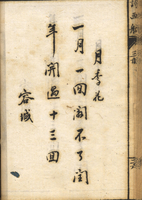 月季花
一月一回閞不了閏
年開過十三回
容城